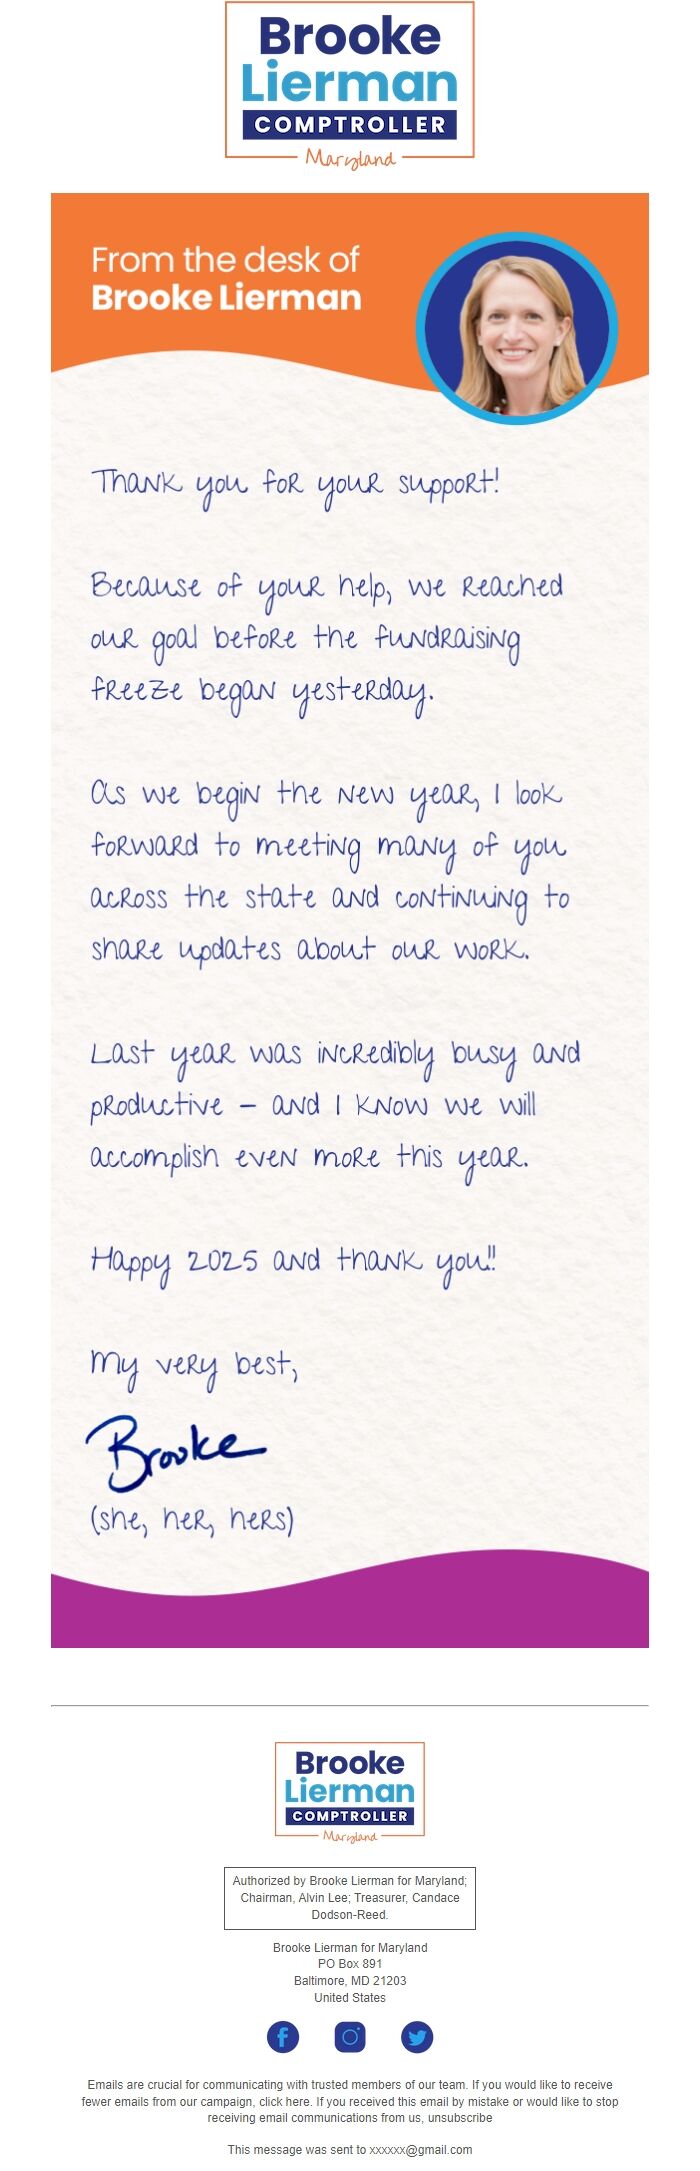 Brooke
Lierman
COMPTROLLER
Maryland
From the desk of
Brooke Lierman
Thank you for your support!
Because of your help, we reached
our goal before the fundraising
freeze began yesterday.
As we begin the new year, I look
forward to meeting many of you
across the state and continuing to
share updates about our work.
Last year was incredibly busy and
productive – and I know we will
accomplish even more this year.
Happy 2025 and thank you!!
My very best,
Brooke
(she, her, hers)
Brooke
Lierman
COMPTROLLER
Maryland
Authorized by Brooke Lierman for Maryland;
Chairman, Alvin Lee; Treasurer, Candace
Dodson-Reed.
Brooke Lierman for Maryland
PO Box 891
Baltimore, MD 21203
United States
Emails are crucial for communicating with trusted members of our team. If you would like to receive
fewer emails from our campaign, click here. If you received this email by mistake or would like to stop
receiving email communications from us, unsubscribe
This message was sent to xxxxxx@gmail.com